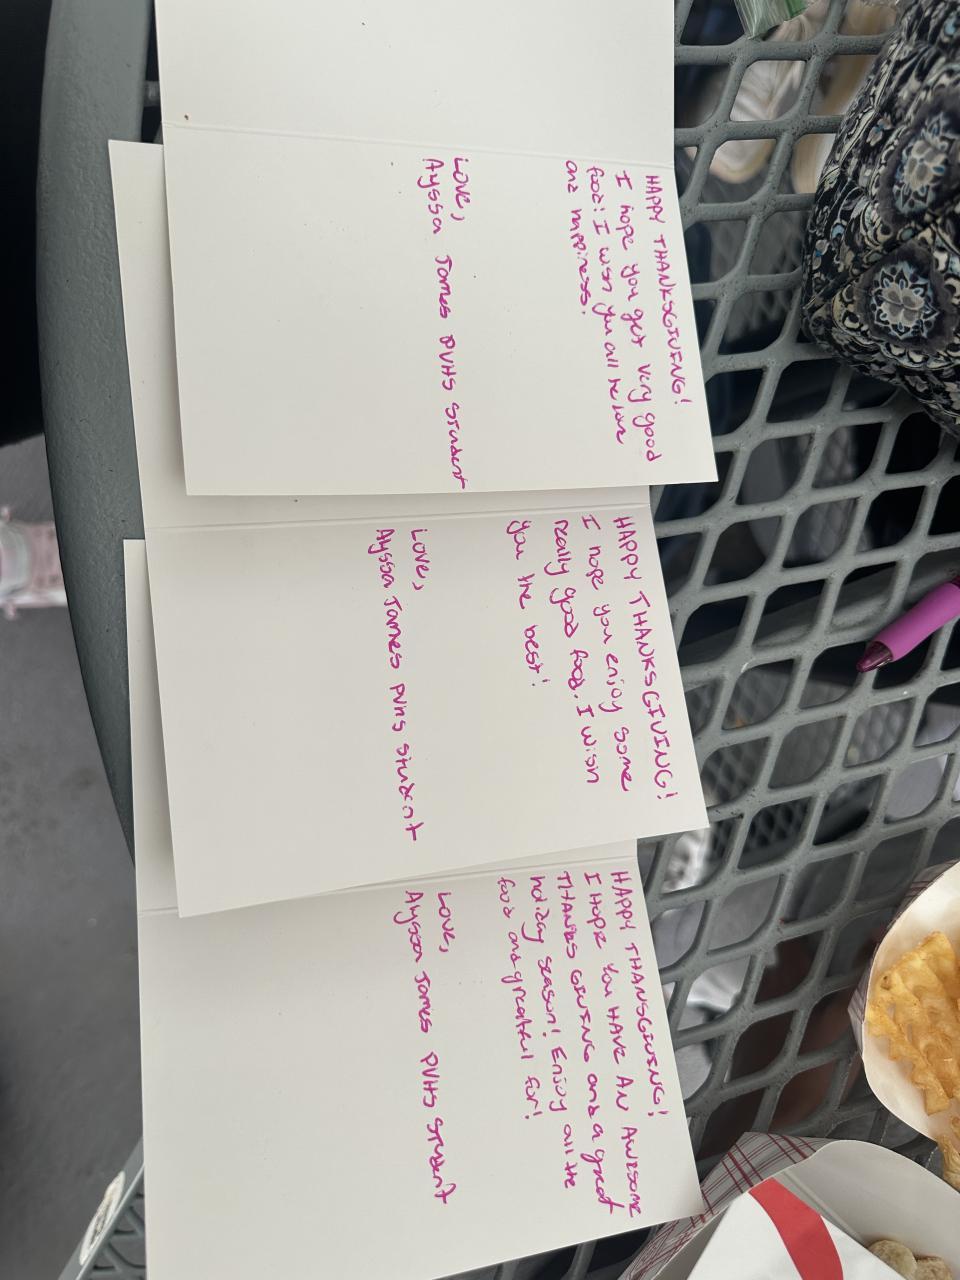 HAPPY THANKSGIVING!
I hope you get very good
food! I wish you all the love
and happiness.
Love,
Alyssa James PVHS Student
HAPPY THANKSGIVING!
I hope you enjoy some
really good food. I wish
you the best!
Love,
Alyssa James PVHS Student
HAPPY THANSGIVING!
I HOPE YOU HAVE AN AWESOME
THANKS GIVING and a great
holiday season! Enjoy all the
food and greatful for!
Love,
Alyssa James PVHS Student